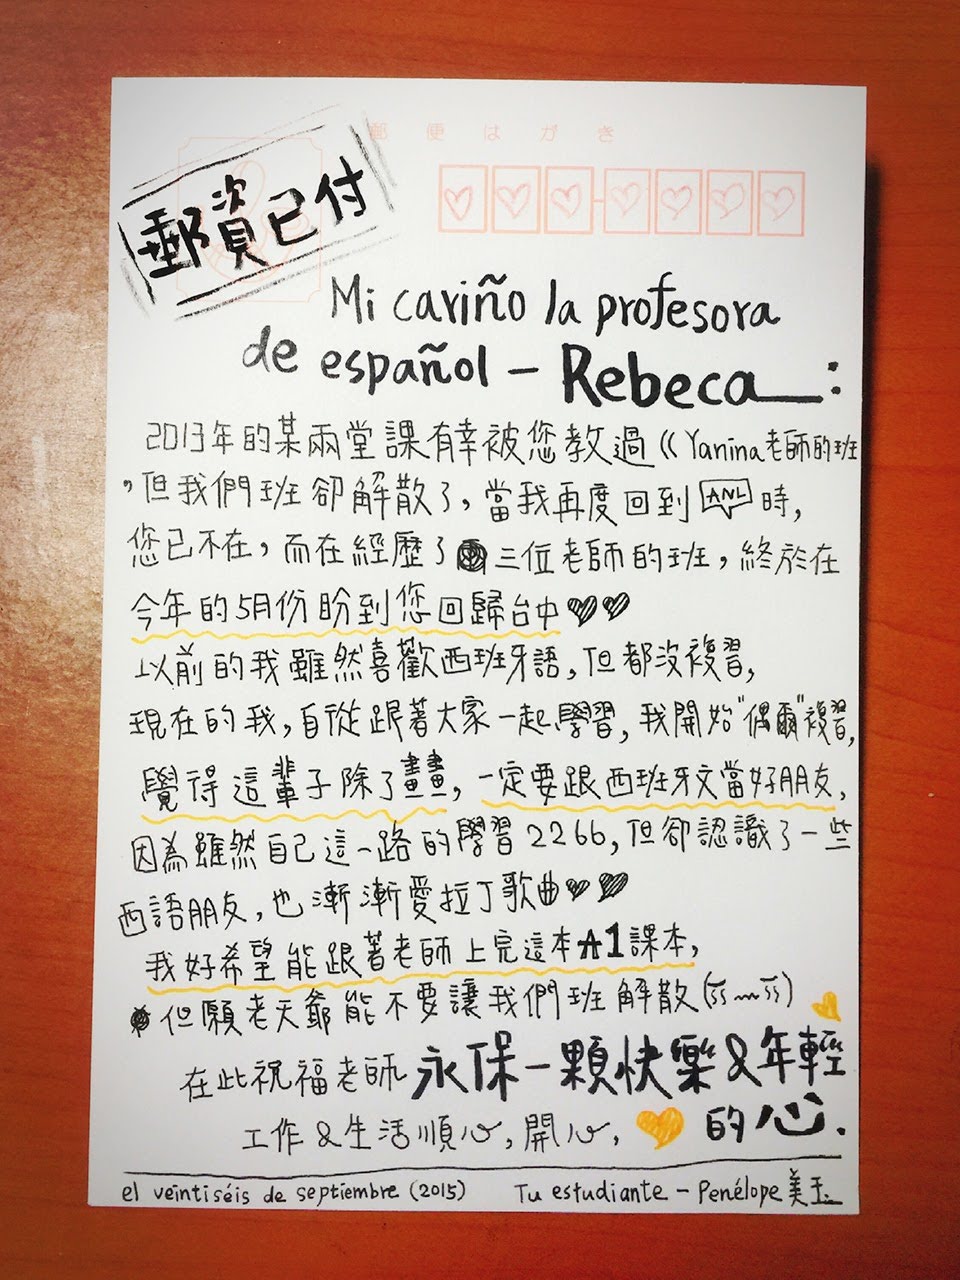 郵便はがき
郵資已付
Mi cariño la profesora
de español – Rebeca :
2013年的某兩堂課有幸被您教過《Yanina老師的班
,但我們班卻解散了,當我再度回到ANL時,
您已不在,而在經歷了三位老師的班,終於在
今年的5月份盼到您回歸台中♥♥
以前的我雖然喜歡西班牙語,但都沒複習,
現在的我,自從跟著大家一起學習,我開始"偶爾"複習,
覺得這輩子除了畫畫,一定要跟西班牙文當好朋友,
因為雖然自己這一路的學習2266,但卻認識了一些
西語朋友,也漸漸愛拉丁歌曲♥♥
我好希望能跟著老師上完這本A1課本,
但願老天爺能不要讓我們班解散(ㄎ﹏ㄎ)
在此祝福老師永保一顆快樂&年輕
的心.
工作&生活順心,開心,
el veintiséis de septiembre (2015) Tu estudiante – Penélope 美玉.